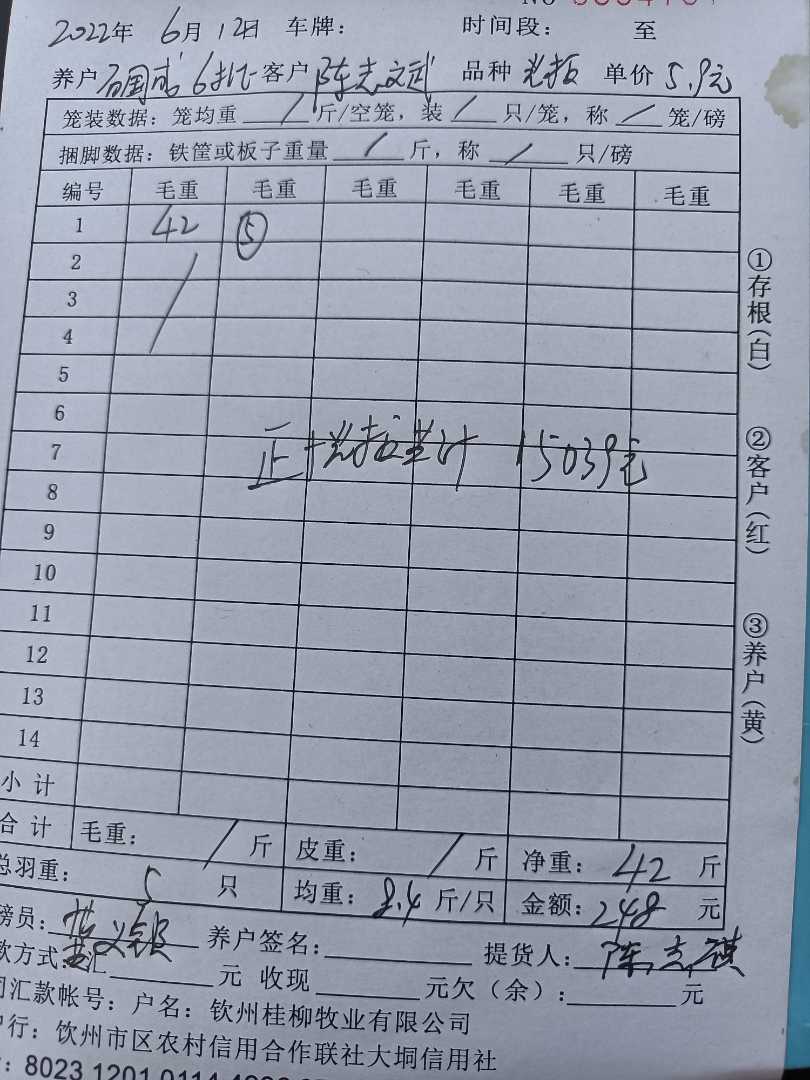 2022年 6月 12日 车牌： 时间段： 至
养户 6批 客户 陈志 品种 单价 5.9元
笼装数据：笼均重 / 斤/空笼，装 / 只/笼，称 / 笼/磅
捆脚数据：铁筐或板子重量 / 斤，称 / 只/磅
编号 毛重 毛重 毛重 毛重 毛重 毛重
1 42 ⑤
2
3
4
5
6
7
正+ 共计 15039元
8
9
10
11
12
13
14
小 计
合 计 毛重： / 斤 皮重： / 斤 净重： 42 斤
总羽重： 5 只 均重： 8.4 斤/只 金额： 248 元
磅员： 养户签名： 提货人： 陈志
款方式： 汇 元 收现 元欠（余）： 元
司汇款帐号：户名：钦州桂柳牧业有限公司
户行：钦州市区农村信用合作联社大垌信用社
：8023 1201 0114
①存根（白）
②客户（红）
③养户（黄）